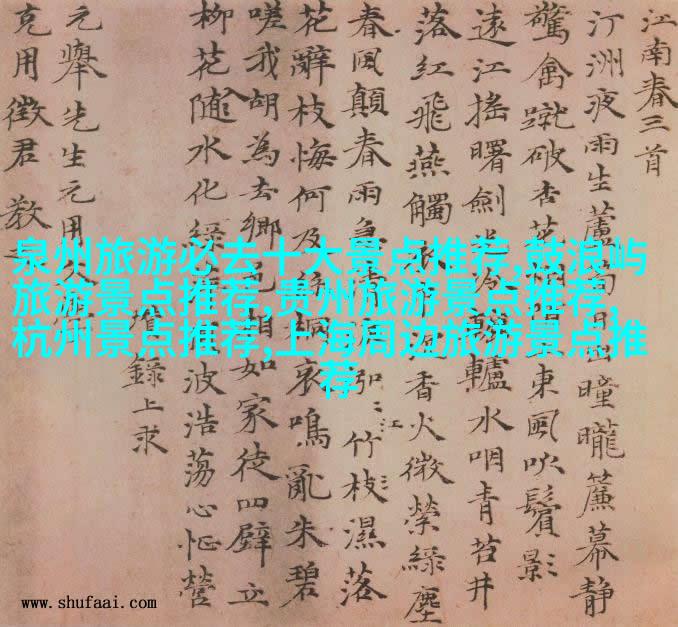 江南春三首
汀洲夜雨生蘆筍日出曈曨簾幕靜
驚禽蹴破杏花烟東風吹鬢影
遠江搖曙劍冷轤水咽青苔井
落紅飛燕觸香火微縈綠塵
春風顛春雨急江竹枝濕落
花辭枝悔何及哀鳴亂朱碧
嗟我胡為去鄉邑相如家徒四壁立
柳花隨水化綠波浩蕩心怔營
錄上求
元舉先生元用文
克用徵君 教
泉州旅游必去十大景点推荐,鼓浪屿
旅游景点推荐,贵州旅游景点推荐,
杭州景点推荐,上海周边旅游景点推
荐
www.shufaai.com